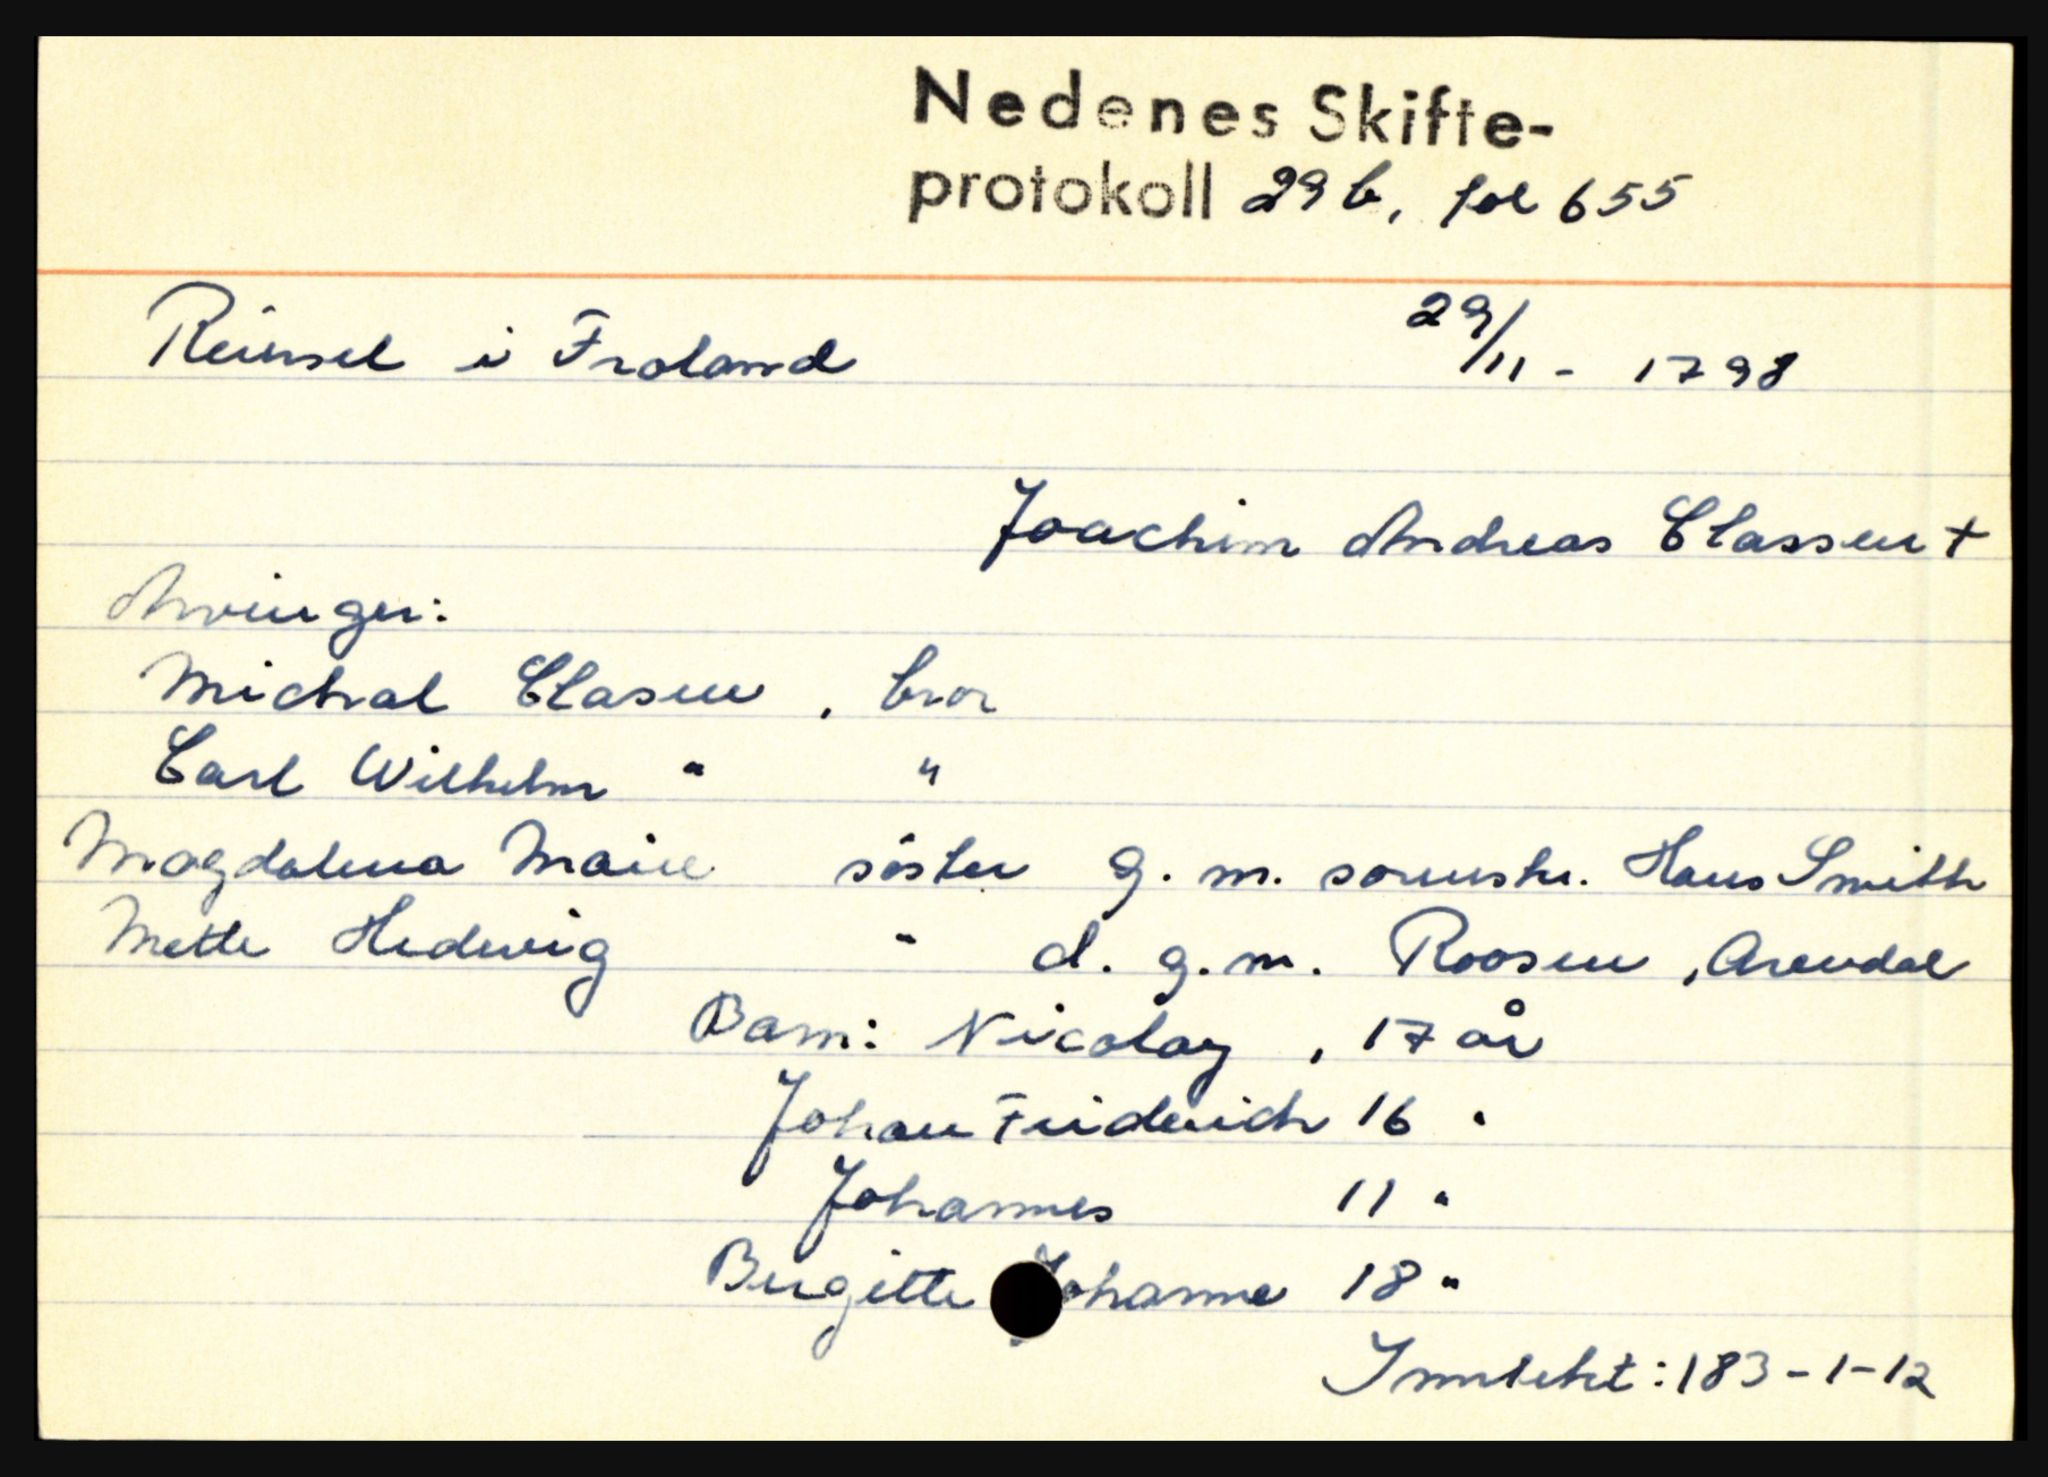 Nedenes Skifte-
protokoll 29 b, fol 655
Reinsel i Froland 29/11 - 1798
Joachim Andreas Classen +
Arvinger:
Michal Clasen, bror
Carl Wilhelm " "
Magdalena Marie söster g. m. sorenskr. Hans Smith
Mette Hedevig " d. g. m. Roosen, Arendal
Barn: Nicolay, 17 år
Johan Friderich 16 "
Johannes 11 "
Birgitte Johanne 18 "
Inntekt: 183-1-12